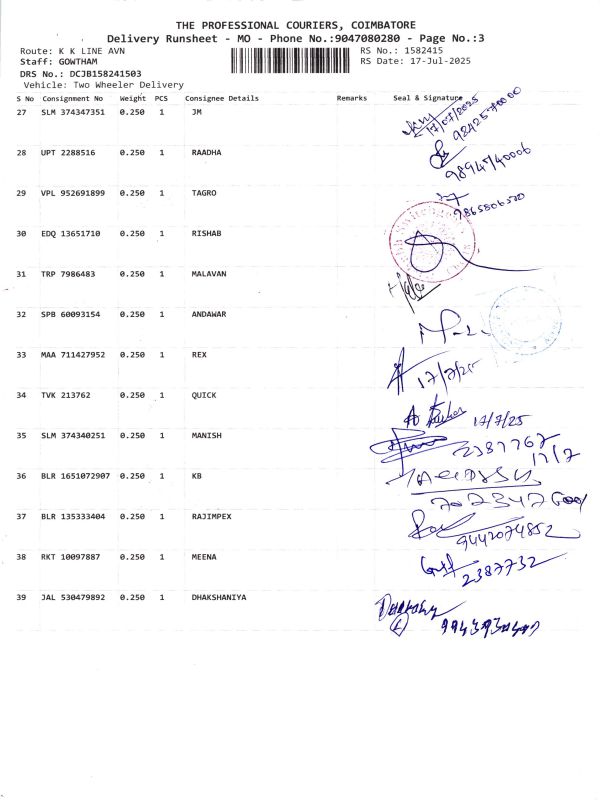 THE PROFESSIONAL COURIERS, COIMBATORE
Delivery Runsheet - MO - Phone No.:9047080280 - Page No.:3
Route: K K LINE AVN
RS No.: 1582415
Staff: GOWTHAM
RS Date: 17-Jul-2025
DRS No.: DCJB158241503
Vehicle: Two Wheeler Delivery
S No Consignment No Weight PCS Consignee Details Remarks Seal & Signature
27 SLM 374347351 0.250 1 JM
17/07/2025
9842570000
28 UPT 2288516 0.250 1 RAADHA
9894740006
29 VPL 952691899 0.250 1 TAGRO
30 EDQ 13651710 0.250 1 RISHAB
31 TRP 7986483 0.250 1 MALAVAN
32 SPB 60093154 0.250 1 ANDAWAR
33 MAA 711427952 0.250 1 REX
17/7/25
34 TVK 213762 0.250 1 QUICK
17/7/25
35 SLM 374340251 0.250 1 MANISH
2387767
17/7
36 BLR 1651072907 0.250 1 KB
37 BLR 135333404 0.250 1 RAJIMPEX
9442074852
38 RKT 10097887 0.250 1 MEENA
2387732
39 JAL 530479892 0.250 1 DHAKSHANIYA